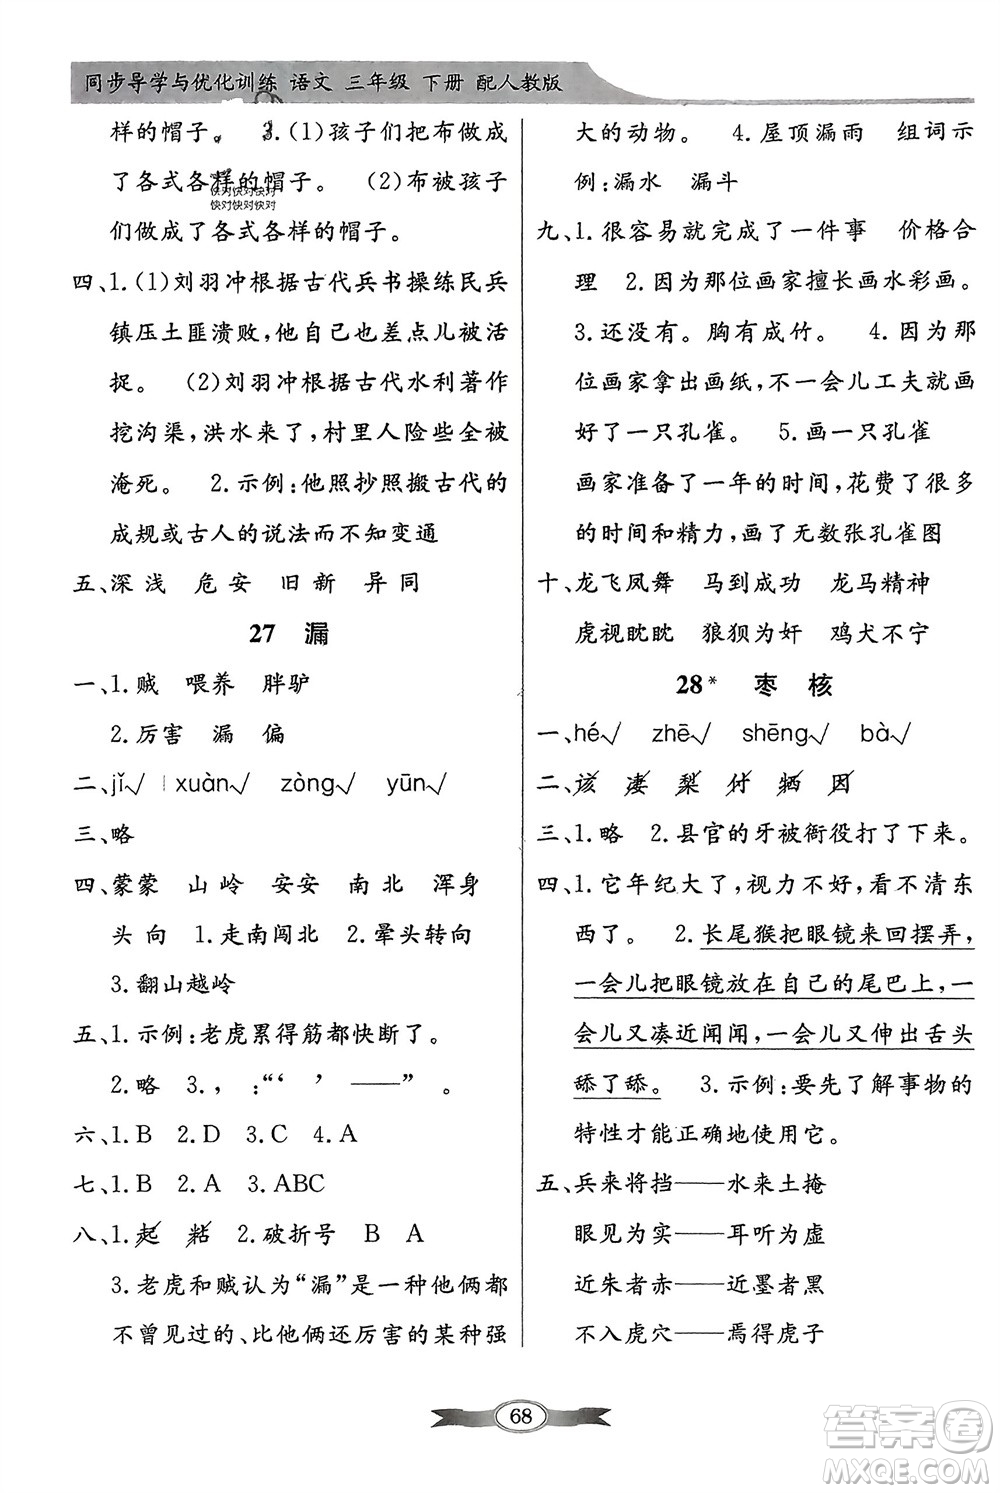 同步导学与优化训练 语文 三年级 下册 配人教版
样的帽子。 3.(1)孩子们把布做成
了各式各样的帽子。 (2)布被孩子
快对快对快对
快对快对快对
们做成了各式各样的帽子。
四、1.(1)刘羽冲根据古代兵书操练民兵
镇压土匪溃败,他自己也差点儿被活
捉。 (2)刘羽冲根据古代水利著作
挖沟渠,洪水来了,村里人险些全被
淹死。 2.示例:他照抄照搬古代的
成规或古人的说法而不知变通
五、深 浅 危 安 旧 新 异 同
27 漏
一、1.贼 喂养 胖驴
2.厉害 漏 偏
二、jǐ√ xuàn√ zòng√ yūn√
三、略
四、蒙蒙 山岭 安安 南北 浑身
头向 1.走南闯北 2.晕头转向
3.翻山越岭
五、1.示例:老虎累得筋都快断了。
2.略 3., :“‘ ’ ——” 。
六、1.B 2.D 3.C 4.A
七、1.B 2.A 3.ABC
八、1.起 粘 2.破折号 B A
3.老虎和贼认为“漏”是一种他俩都
不曾见过的、比他俩还厉害的某种强
大的动物。 4.屋顶漏雨 组词示
例:漏水 漏斗
九、1.很容易就完成了一件事 价格合
理 2.因为那位画家擅长画水彩画。
3.还没有。胸有成竹。 4.因为那
位画家拿出画纸,不一会儿工夫就画
好了一只孔雀。 5.画一只孔雀
画家准备了一年的时间,花费了很多
的时间和精力,画了无数张孔雀图
十、龙飞凤舞 马到成功 龙马精神
虎视眈眈 狼狈为奸 鸡犬不宁
28* 枣 核
一、hé√ zhē√ shēng√ bà√
二、该 凄 梨 付 牺 因
三、1.略 2.县官的牙被衙役打了下来。
四、1.它年纪大了,视力不好,看不清东
西了。 2.长尾猴把眼镜来回摆弄,
一会儿把眼镜放在自己的尾巴上,一
会儿又凑近闻闻,一会儿又伸出舌头
舔了舔。 3.示例:要先了解事物的
特性才能正确地使用它。
五、兵来将挡——水来土掩
眼见为实——耳听为虚
近朱者赤——近墨者黑
不入虎穴——焉得虎子
68
答案圈
MXQE.COM